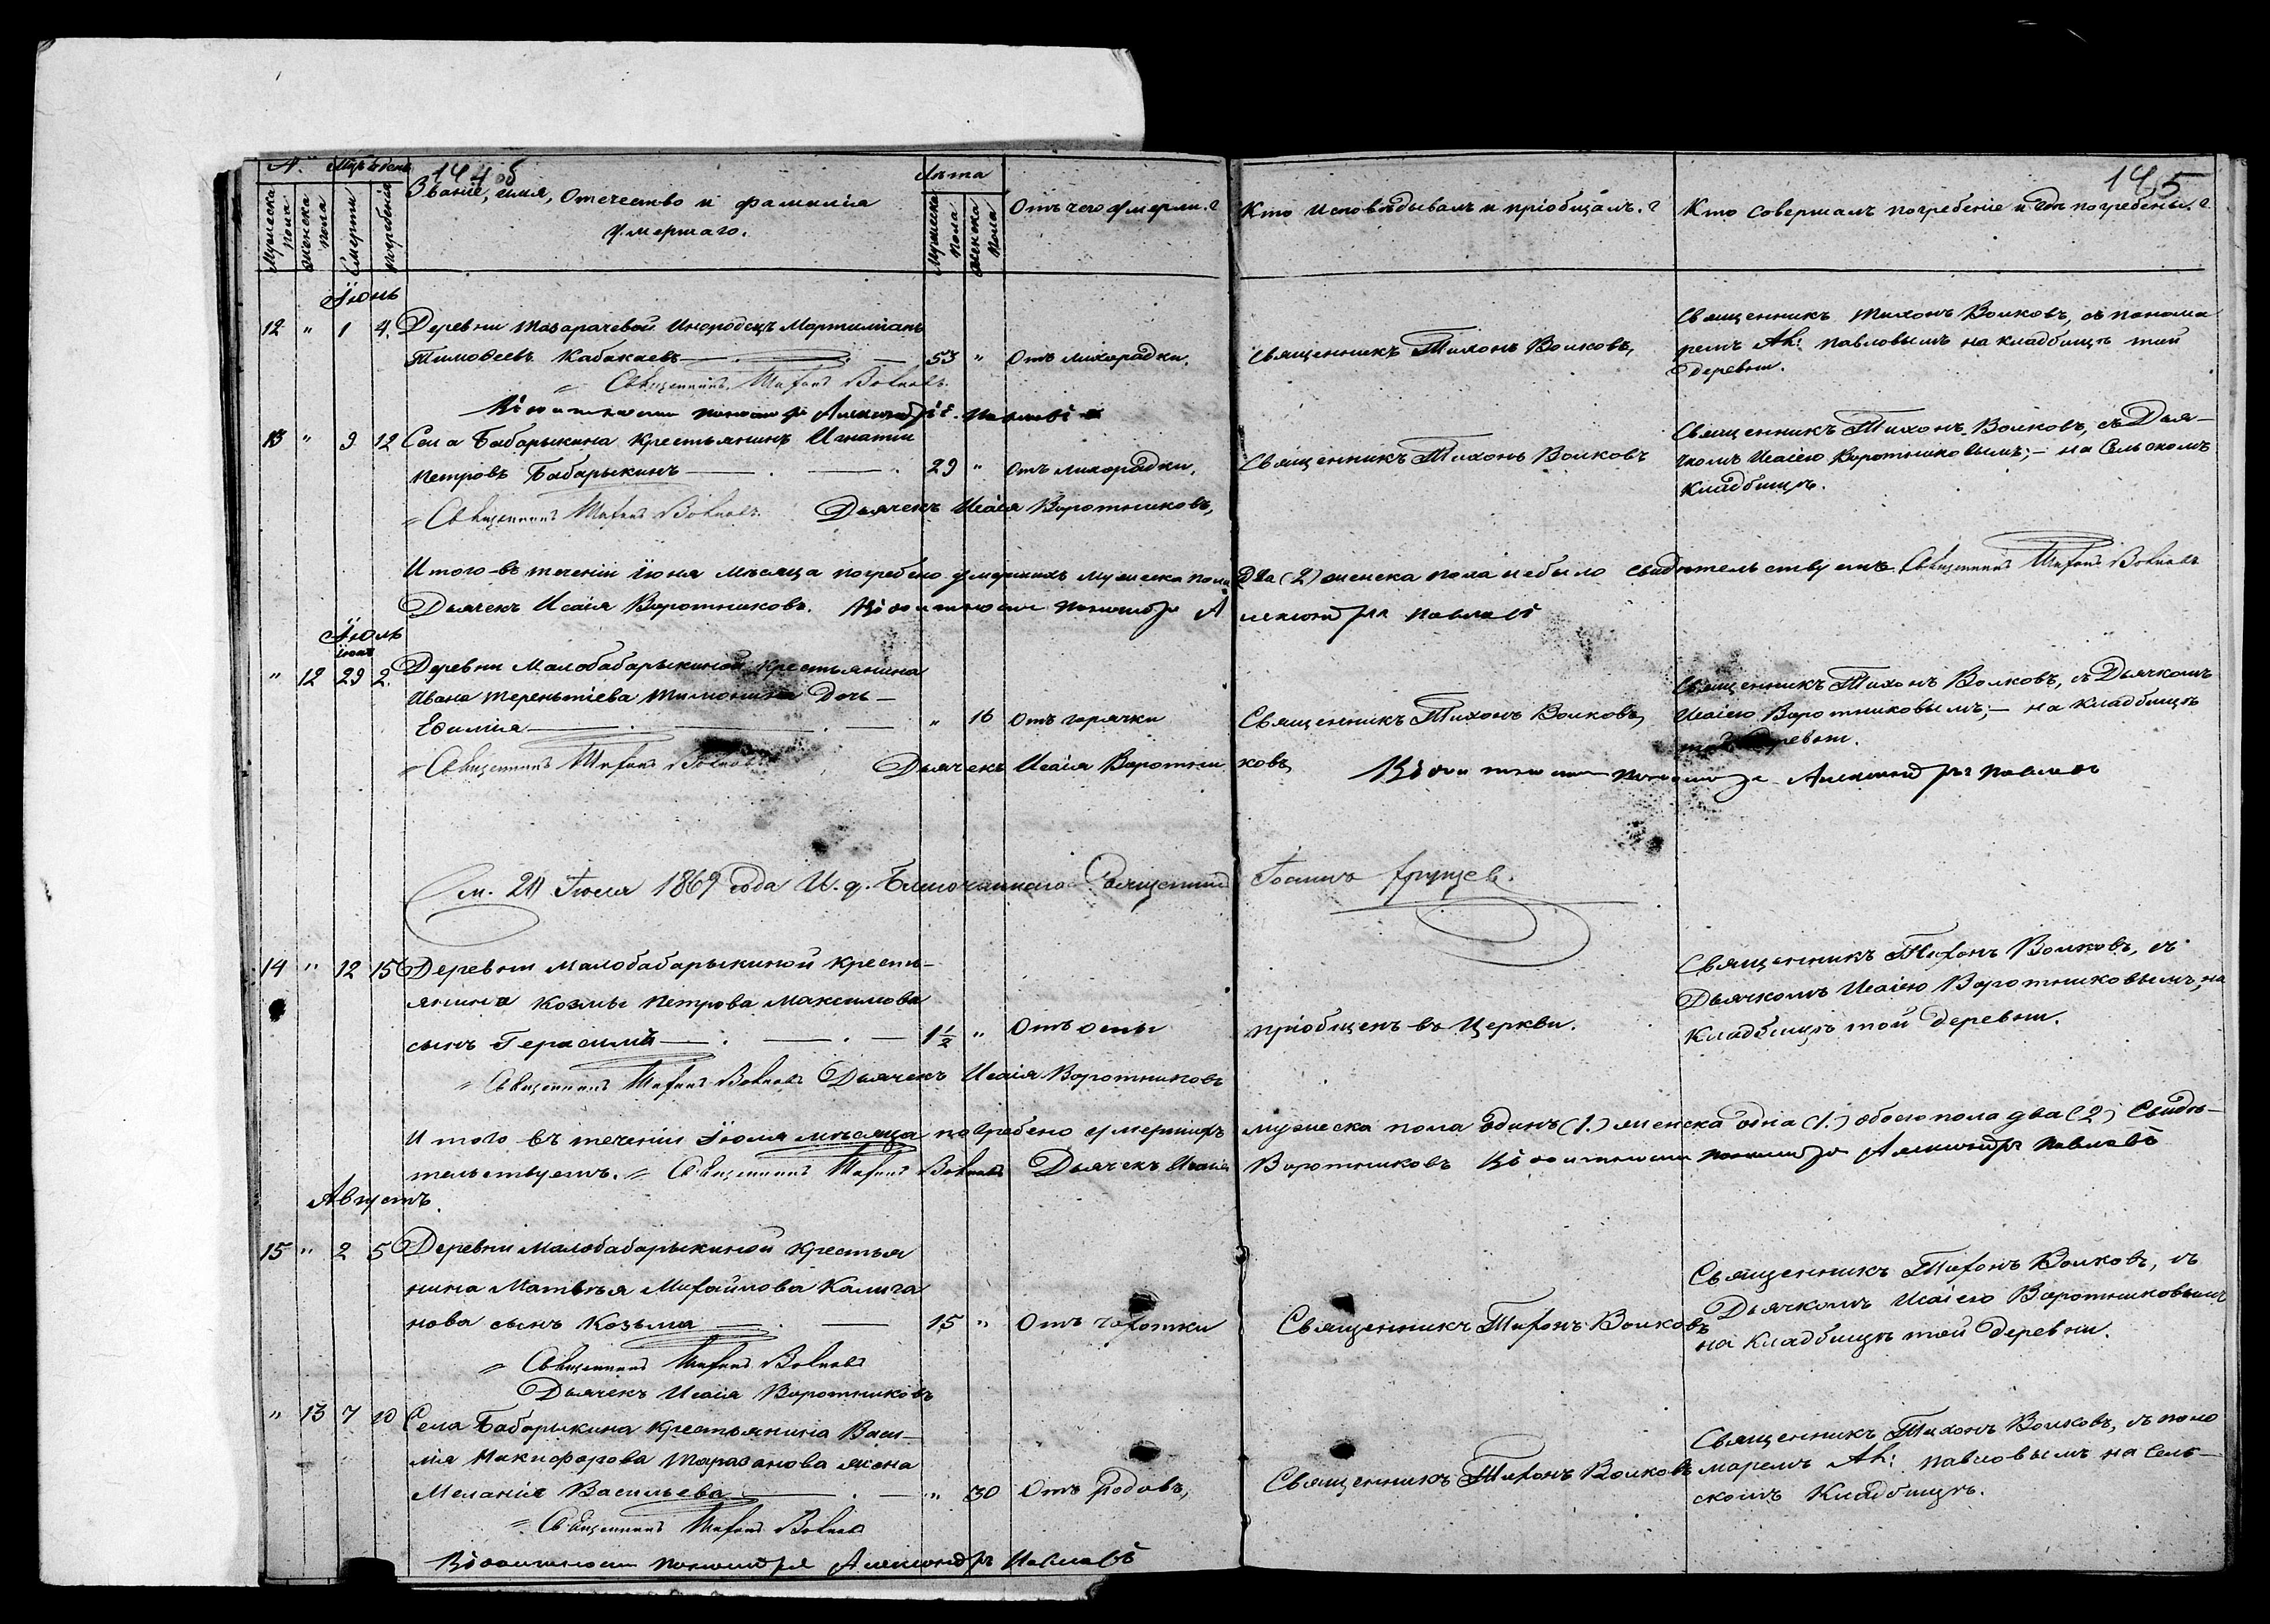 144 об
145
№. Мѣр. и день
Мужеска пола
Женска пола
Смерти
Погребенія
Званіе, имя, Отечество и фамилія
умершаго.
Лѣта
Мужеска пола
женска пола
Отъ чего умерли.?
Кто исповѣдывалъ и пріобщалъ.?
Кто совершалъ погребеніе и гдѣ погребены.?
Іюнь
12 " 1 4. Деревни Инородецъ
Тимоѳеевъ Кабакаевъ 53 " Отъ лихорадки.
Священникъ Тихонъ Волковъ,
Священникъ Тихонъ Волковъ, съ понома
ремъ Ал: Павловымъ на кладбищѣ той
деревни.
Священникъ Тихонъ Волковъ.
13 " 9 12 Села Бабарыкина крестьянинъ Игнатій
Петровъ Бабарыкинъ 29 " Отъ лихорадки.
Священникъ Тихонъ Волковъ
Священникъ Тихонъ Волковъ, съ Дья-
чкомъ Исаіею Воротниковымъ; - на Сельскомъ
Кладбищѣ.
Священникъ Тихонъ Волковъ. Дьячекъ Исаія Воротниковъ,
Итого въ теченіи Іюня мѣсяца погребено умершихъ мужеска пола два (2) женска пола небыло свидѣтельствуемъ. Священникъ Тихонъ Волковъ
Дьячекъ Исаія Воротниковъ. Александръ Павловъ
Іюль
Іюня
" 12 29 2. Деревни Малобабарыкиной крестьянина
Ивана Терентіева Тимонина Дочь -
Евѳимія " 16 Отъ горячки
Священникъ Тихонъ Волковъ,
Священникъ Тихонъ Волковъ, съ Дьячкомъ
Исаіею Воротниковымъ, - на кладбищѣ
той деревни.
Священникъ Тихонъ Волковъ Дьячекъ Исаія Воротниковъ Александръ Павловъ
См. 20 Іюля 1869 года И. д. Благочиннаго Священникъ Іоаннъ
14 " 12 15 Деревни Малобабарыкиной кресть-
янина Козмы Петрова Максимова
сынъ Герасимъ 1½ " Отъ оспы
пріобщенъ въ Церкви.
Священникъ Тихонъ Волковъ, съ
Дьячкомъ Исаіею Воротниковымъ, на
кладбищѣ той деревни.
Священникъ Тихонъ Волковъ Дьячекъ Исаія Воротниковъ
Итого въ теченіи Іюля мѣсяца погребено умершихъ мужеска пола одинъ (1.) женска одна (1.) обоего пола два (2) Свидѣ-
тельствуемъ. Священникъ Тихонъ Волковъ Дьячекъ Исаія Воротниковъ Александръ Павловъ
Августъ.
15 " 2 5 Деревни Малобабарыкиной крестья
нина Матвѣя Михайлова Калига
нова сынъ Козьма 15 " Отъ чахотки
Священникъ Тихонъ Волковъ
Священникъ Тихонъ Волковъ, съ
Дьячкомъ Исаіею Воротниковымъ
на кладбищѣ той деревни.
Священникъ Тихонъ Волковъ
Дьячекъ Исаія Воротниковъ
" 13 7 10 Села Бабарыкина крестьянина Васи-
лія Никифорова Таразанова жена
Меланія Васильева " 30 Отъ родовъ,
Священникъ Тихонъ Волковъ
Священникъ Тихонъ Волковъ, съ поно
маремъ Ал: Павловымъ на Сель-
скомъ Кладбищѣ.
Священникъ Тихонъ Волковъ
Александръ Павловъ